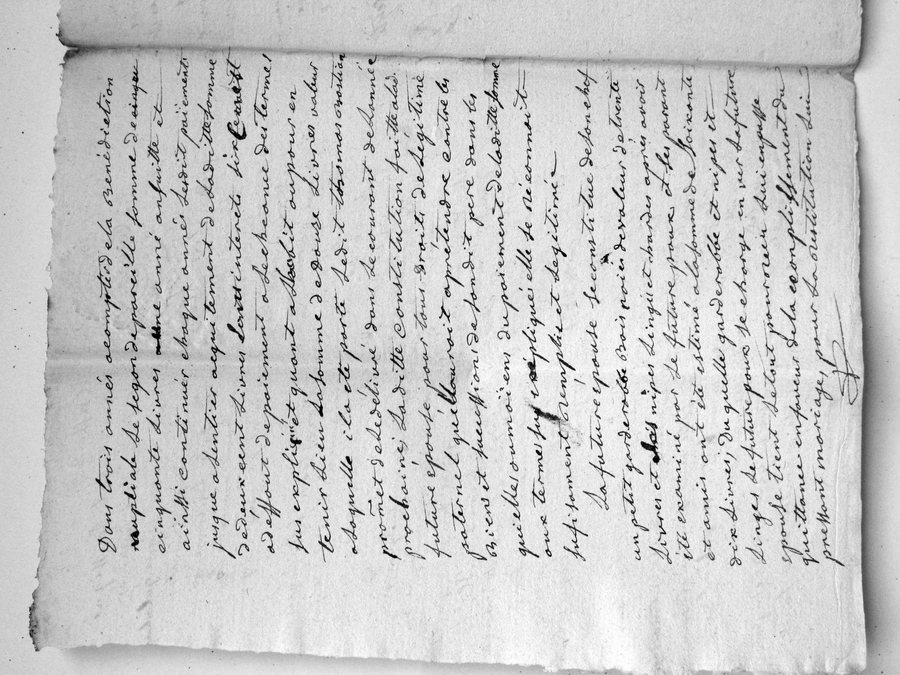 Dans trois annés acomptér de la Benediction
nuptiale le segon de pareille somme de cinqua
cinquante livres une annéé ansuitte et
ainssi continuér chaque anné ledit paiement
jusque a lentier aquitement de ladite somme
de deux cent livres sans interets lire
adeffaut de paiement a echeance des termes
sus expliqué et quant audit oupour en
tenir lieu la somme de douse livres valeur
alaquelle il a eté porté ledit thomas
promet de le delivré dans le courant de lannéé
prochaine, la ditte constitution faitte alad.
future epouse pour tous droits de legitime
paternel quelle auroit apretendre contre les
Biens et suecssions de sondit pere dans les
quiebles oumoiens du paiement de la ditte somme
aux termes sus expliqué elle se réconnoit
sufisament remplie et legitimée
La future épouse se constitue de son chef
un petit garderobe Bois noier de valeur de trante
Livres et des nipes Linges et hardes apres avoir
été examiné par le future epoux & les parant
et amis ont été estimé a la somme de Soixante
dix Livres, du quelle garderobbe et nipes et
Linges le future epoux se charge en vers la future
epouse tient le tout pour recu lui en passe
quittance en faveur de la complissement du
pressant mariage, pour la Custitution lui